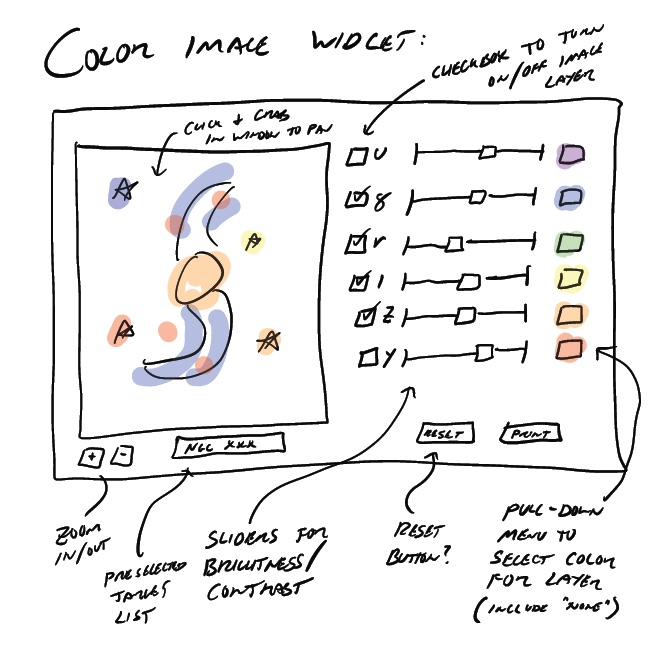 COLOR IMAGE WIDGET:
CHECKBOX TO TURN
ON/OFF IMAGE
LAYER
CLICK + GRAB
IN WINDOW TO PAN
U
g
r
i
Z
y
NGC XXX
RESET
PRINT
+
-
ZOOM
IN/OUT
PRESELECTED
TARGET
LIST
SLIDERS FOR
BRIGHTNESS/
CONTRAST
RESET
BUTTON?
PULL-DOWN
MENU TO
SELECT COLOR
FOR LAYER
(INCLUDE "NONE")